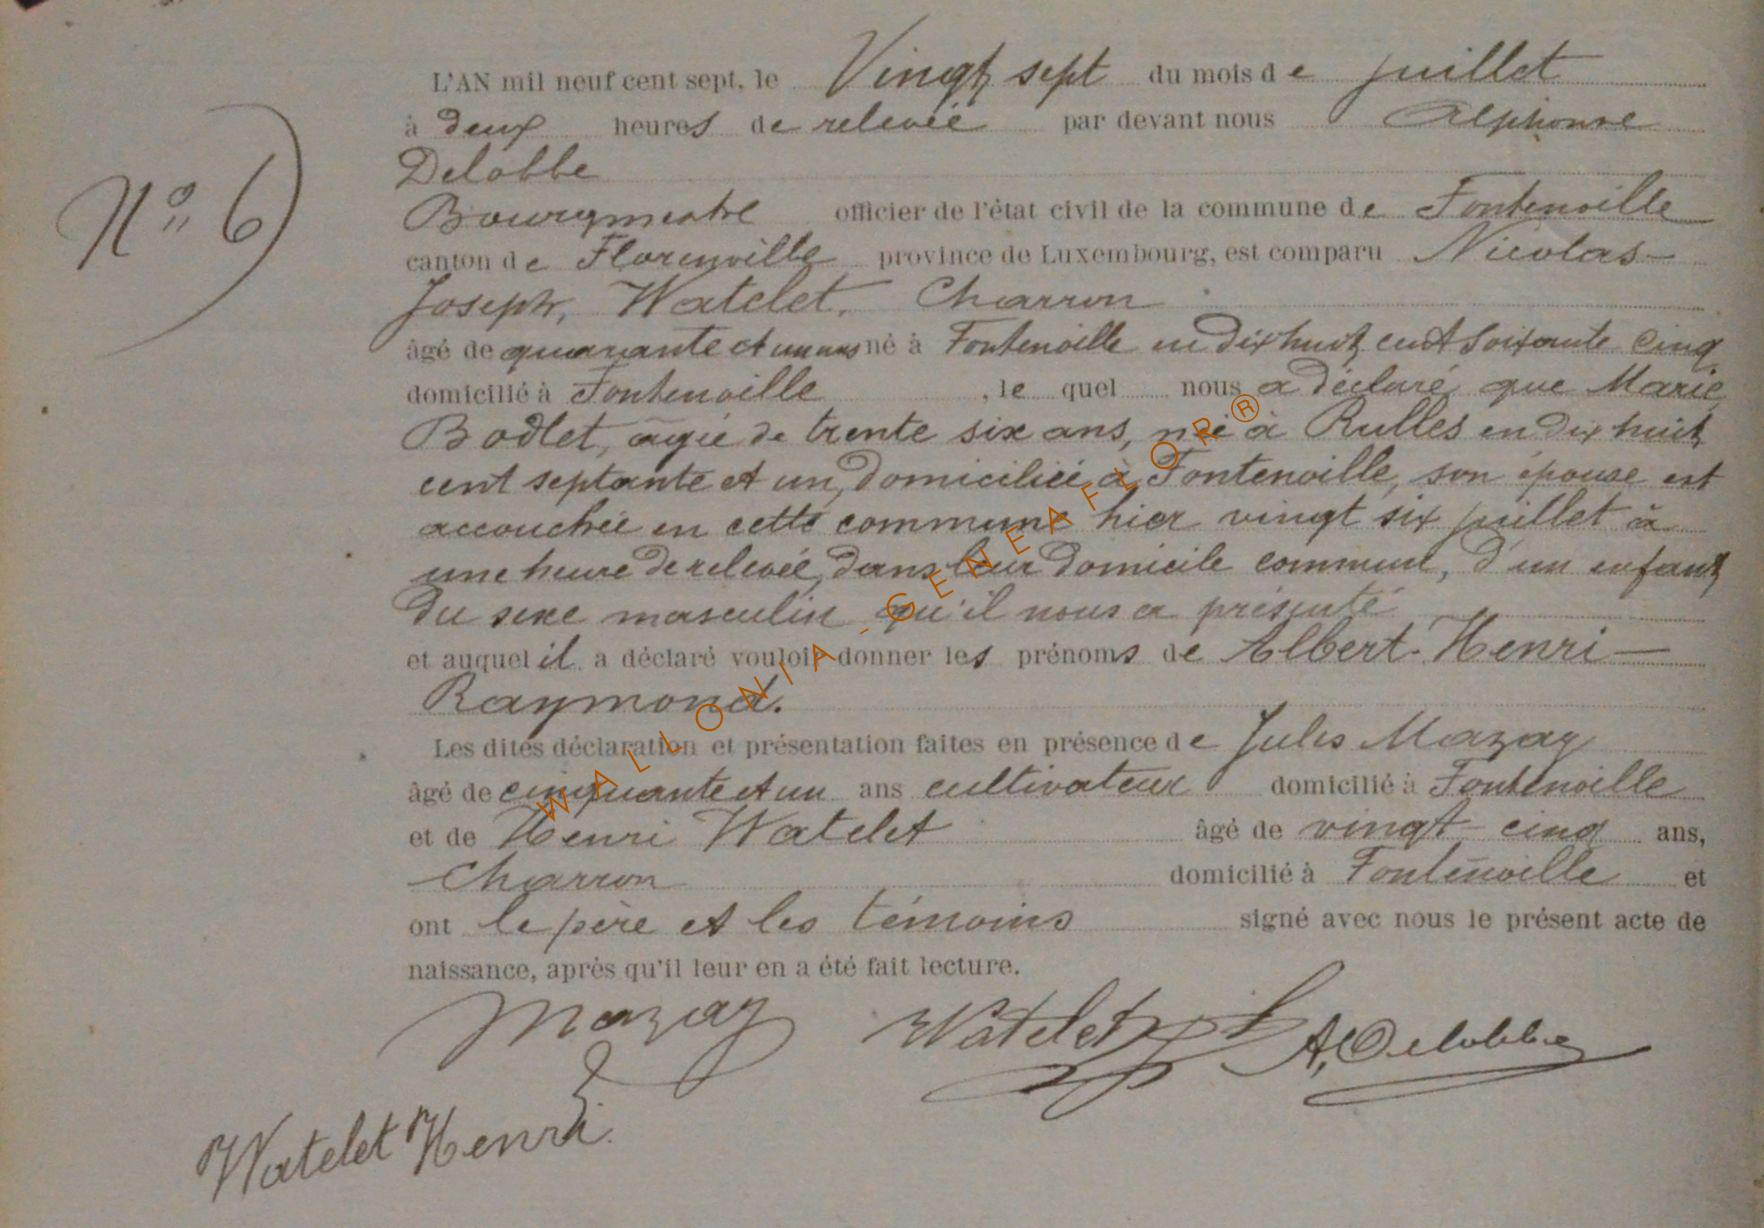 L'AN mil neuf cent sept, le Vingt sept du mois de juillet
à deux heures de relevée par devant nous Alphonse
Delobbe
Bourgmestre officier de l'état civil de la commune de Fontenoille
N° 6)
canton de Florenville province de Luxembourg, est comparu Nicolas-
Joseph, Watelet, Charron
âgé de quarante et un ans né à Fontenoille en dix huit cent soixante cinq
domicilié à Fontenoille, le quel nous a déclaré que Marie
Bodlet, âgée de trente six ans, née à Rulles en dix huit
cent septante et un, domiciliée à Fontenoille, son épouse est
accouchée en cette commune hier vingt six juillet à
une heure de relevée, dans leur domicile commun, d'un enfant
du sexe masculin qu'il nous a présenté
et auquel il a déclaré vouloir donner les prénoms de Albert-Henri-
Raymond.
Les dites déclaration et présentation faites en présence de Jules Mazay
âgé de cinquante et un ans cultivateur domicilié à Fontenoille
et de Henri Watelet âgé de vingt-cinq ans,
Charron domicilié à Fontenoille et
ont le père et les témoins signé avec nous le présent acte de
naissance, après qu'il leur en a été fait lecture.
Mazay Watelet A. Delobbe
Watelet Henri
WALLONIA-GENEAFLOR®